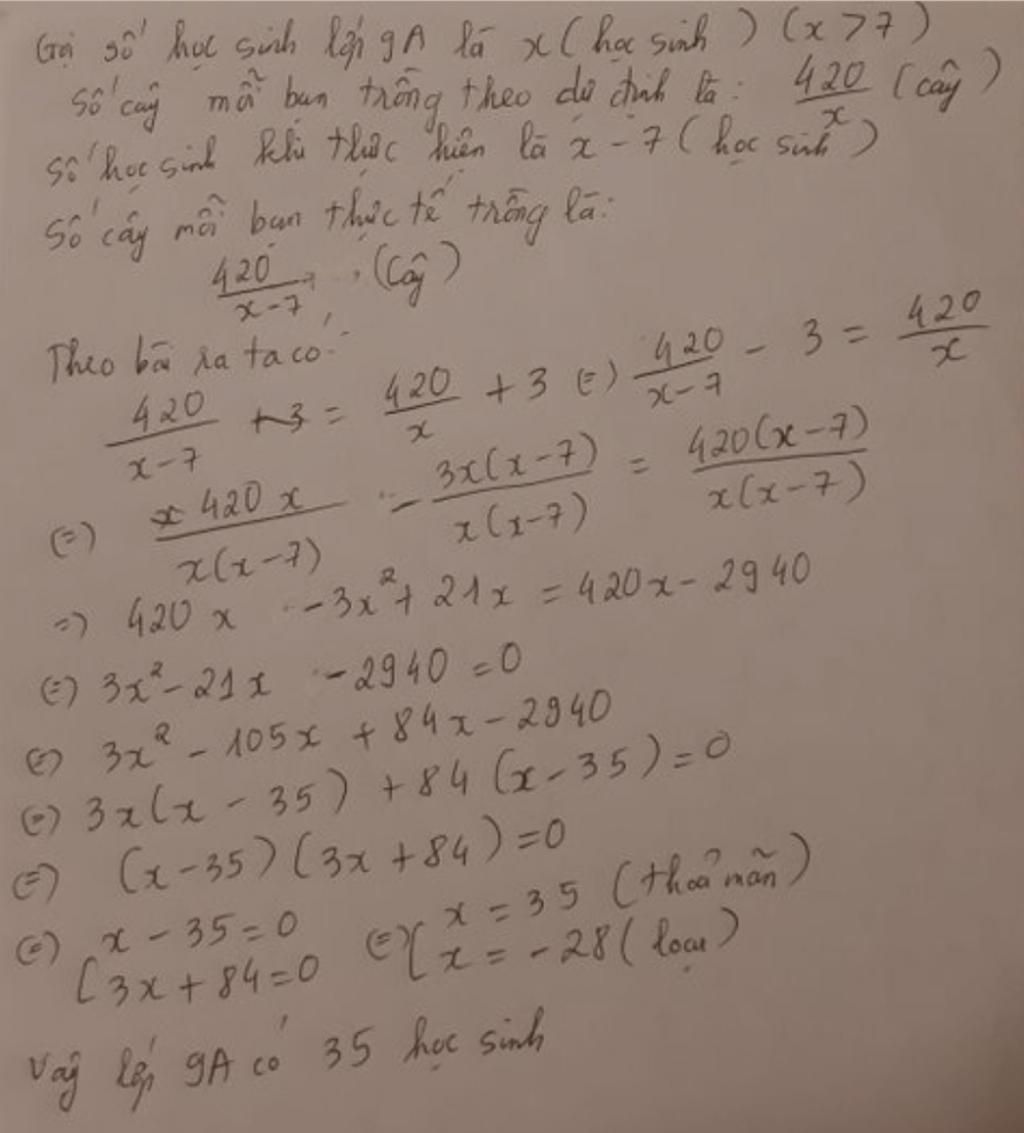 Gọi số học sinh lớp 9A là x (học sinh) (x > 7)
Số cây mỗi bạn trồng theo dự định là: 420/x (cây)
Số học sinh khi thực hiện là x - 7 (học sinh)
Số cây mỗi bạn thực tế trồng là:
420/(x-7) (Cây)
Theo bài ra ta có:
420/(x-7) = 420/x + 3 (=) 420/(x-7) - 3 = 420/x
(=) 420x/(x(x-7)) - 3x(x-7)/(x(x-7)) = 420(x-7)/(x(x-7))
=) 420x - 3x² + 21x = 420x - 2940
(=) 3x² - 21x - 2940 = 0
(=) 3x² - 105x + 84x - 2940
(=) 3x(x - 35) + 84(x - 35) = 0
(=) (x - 35)(3x + 84) = 0
(=) [ x - 35 = 0 (=) [ x = 35 (thoả mãn)
3x + 84 = 0 x = -28 (loại)
Vậy lớp 9A có 35 học sinh